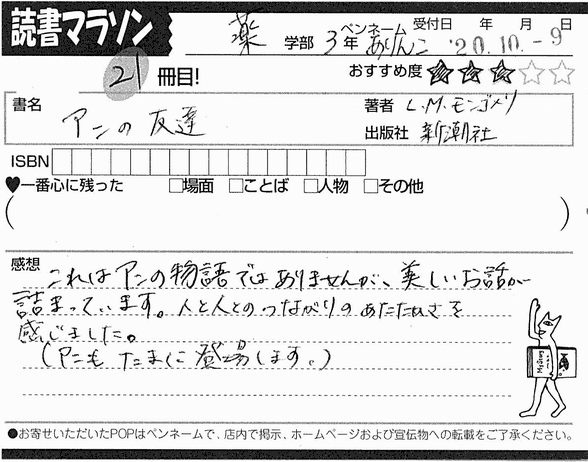 読書マラソン
薬 学部 3年 ペンネーム ありんこ 受付日 年 月 日 '20.10.-9
21 冊目! おすすめ度 ★★★☆☆
書名 アンの友達
著者 L.M.モンゴメリ
出版社 新潮社
ISBN
♥一番心に残った □場面 □ことば □人物 □その他
( )
感想 これはアンの物語ではありませんが、美しいお話が
詰まっています。人と人とのつながりのあたたかさを
感じました。
(アンもたまに登場します。)
●お寄せいただいたPOPはペンネームで、店内で掲示、ホームページおよび宣伝物への転載をご了承ください。